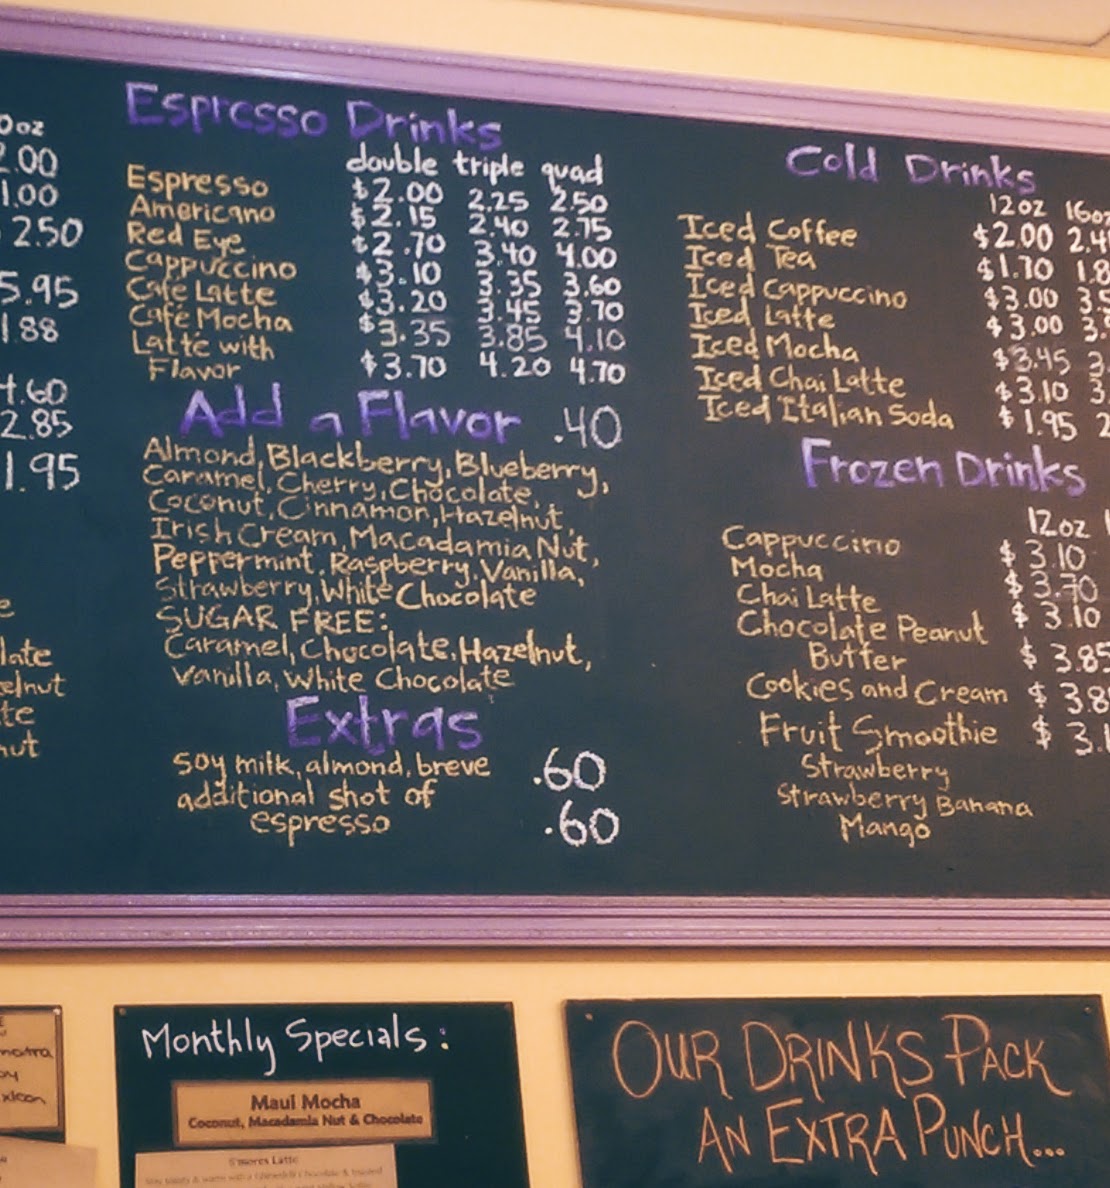 0oz
2.00
1.00
2.50
5.95
1.88
4.60
2.85
1.95
late
elnut
te
nut
Espresso Drinks
double triple quad
Espresso $2.00 2.25 2.50
Americano $2.15 2.40 2.75
Red Eye $2.70 3.40 4.00
Cappuccino $3.10 3.35 3.60
Café Latte $3.20 3.45 3.70
Café Mocha $3.35 3.85 4.10
Latté with
Flavor $3.70 4.20 4.70
Add a Flavor .40
Almond, Blackberry, Blueberry,
Caramel, Cherry, Chocolate,
Coconut, Cinnamon, Hazelnut,
Irish Cream, Macadamia Nut,
Peppermint, Raspberry, Vanilla,
Strawberry, White Chocolate
SUGAR FREE:
Caramel, Chocolate, Hazelnut,
Vanilla, White Chocolate
Extras
Soy milk, almond, breve .60
additional shot of
espresso .60
Cold Drinks
12oz 16oz
Iced Coffee $2.00 2.4
Iced Tea $1.70 1.8
Iced Cappuccino $3.00 3.5
Iced Latte $3.00 3.
Iced Mocha $3.45 3.
Iced Chai Latte $3.10 3.
Iced Italian Soda $1.95 2
Frozen Drinks
12oz 1
Cappuccino $3.10
Mocha $3.70
Chai Latte $3.10
Chocolate Peanut
Butter $3.85
Cookies and Cream $3.8
Fruit Smoothie $3.
Strawberry
Strawberry Banana
Mango
Monthly Specials:
Maui Mocha
Coconut, Macadamia Nut & Chocolate
S'mores Latte
OUR DRINKS PACK
AN EXTRA PUNCH...